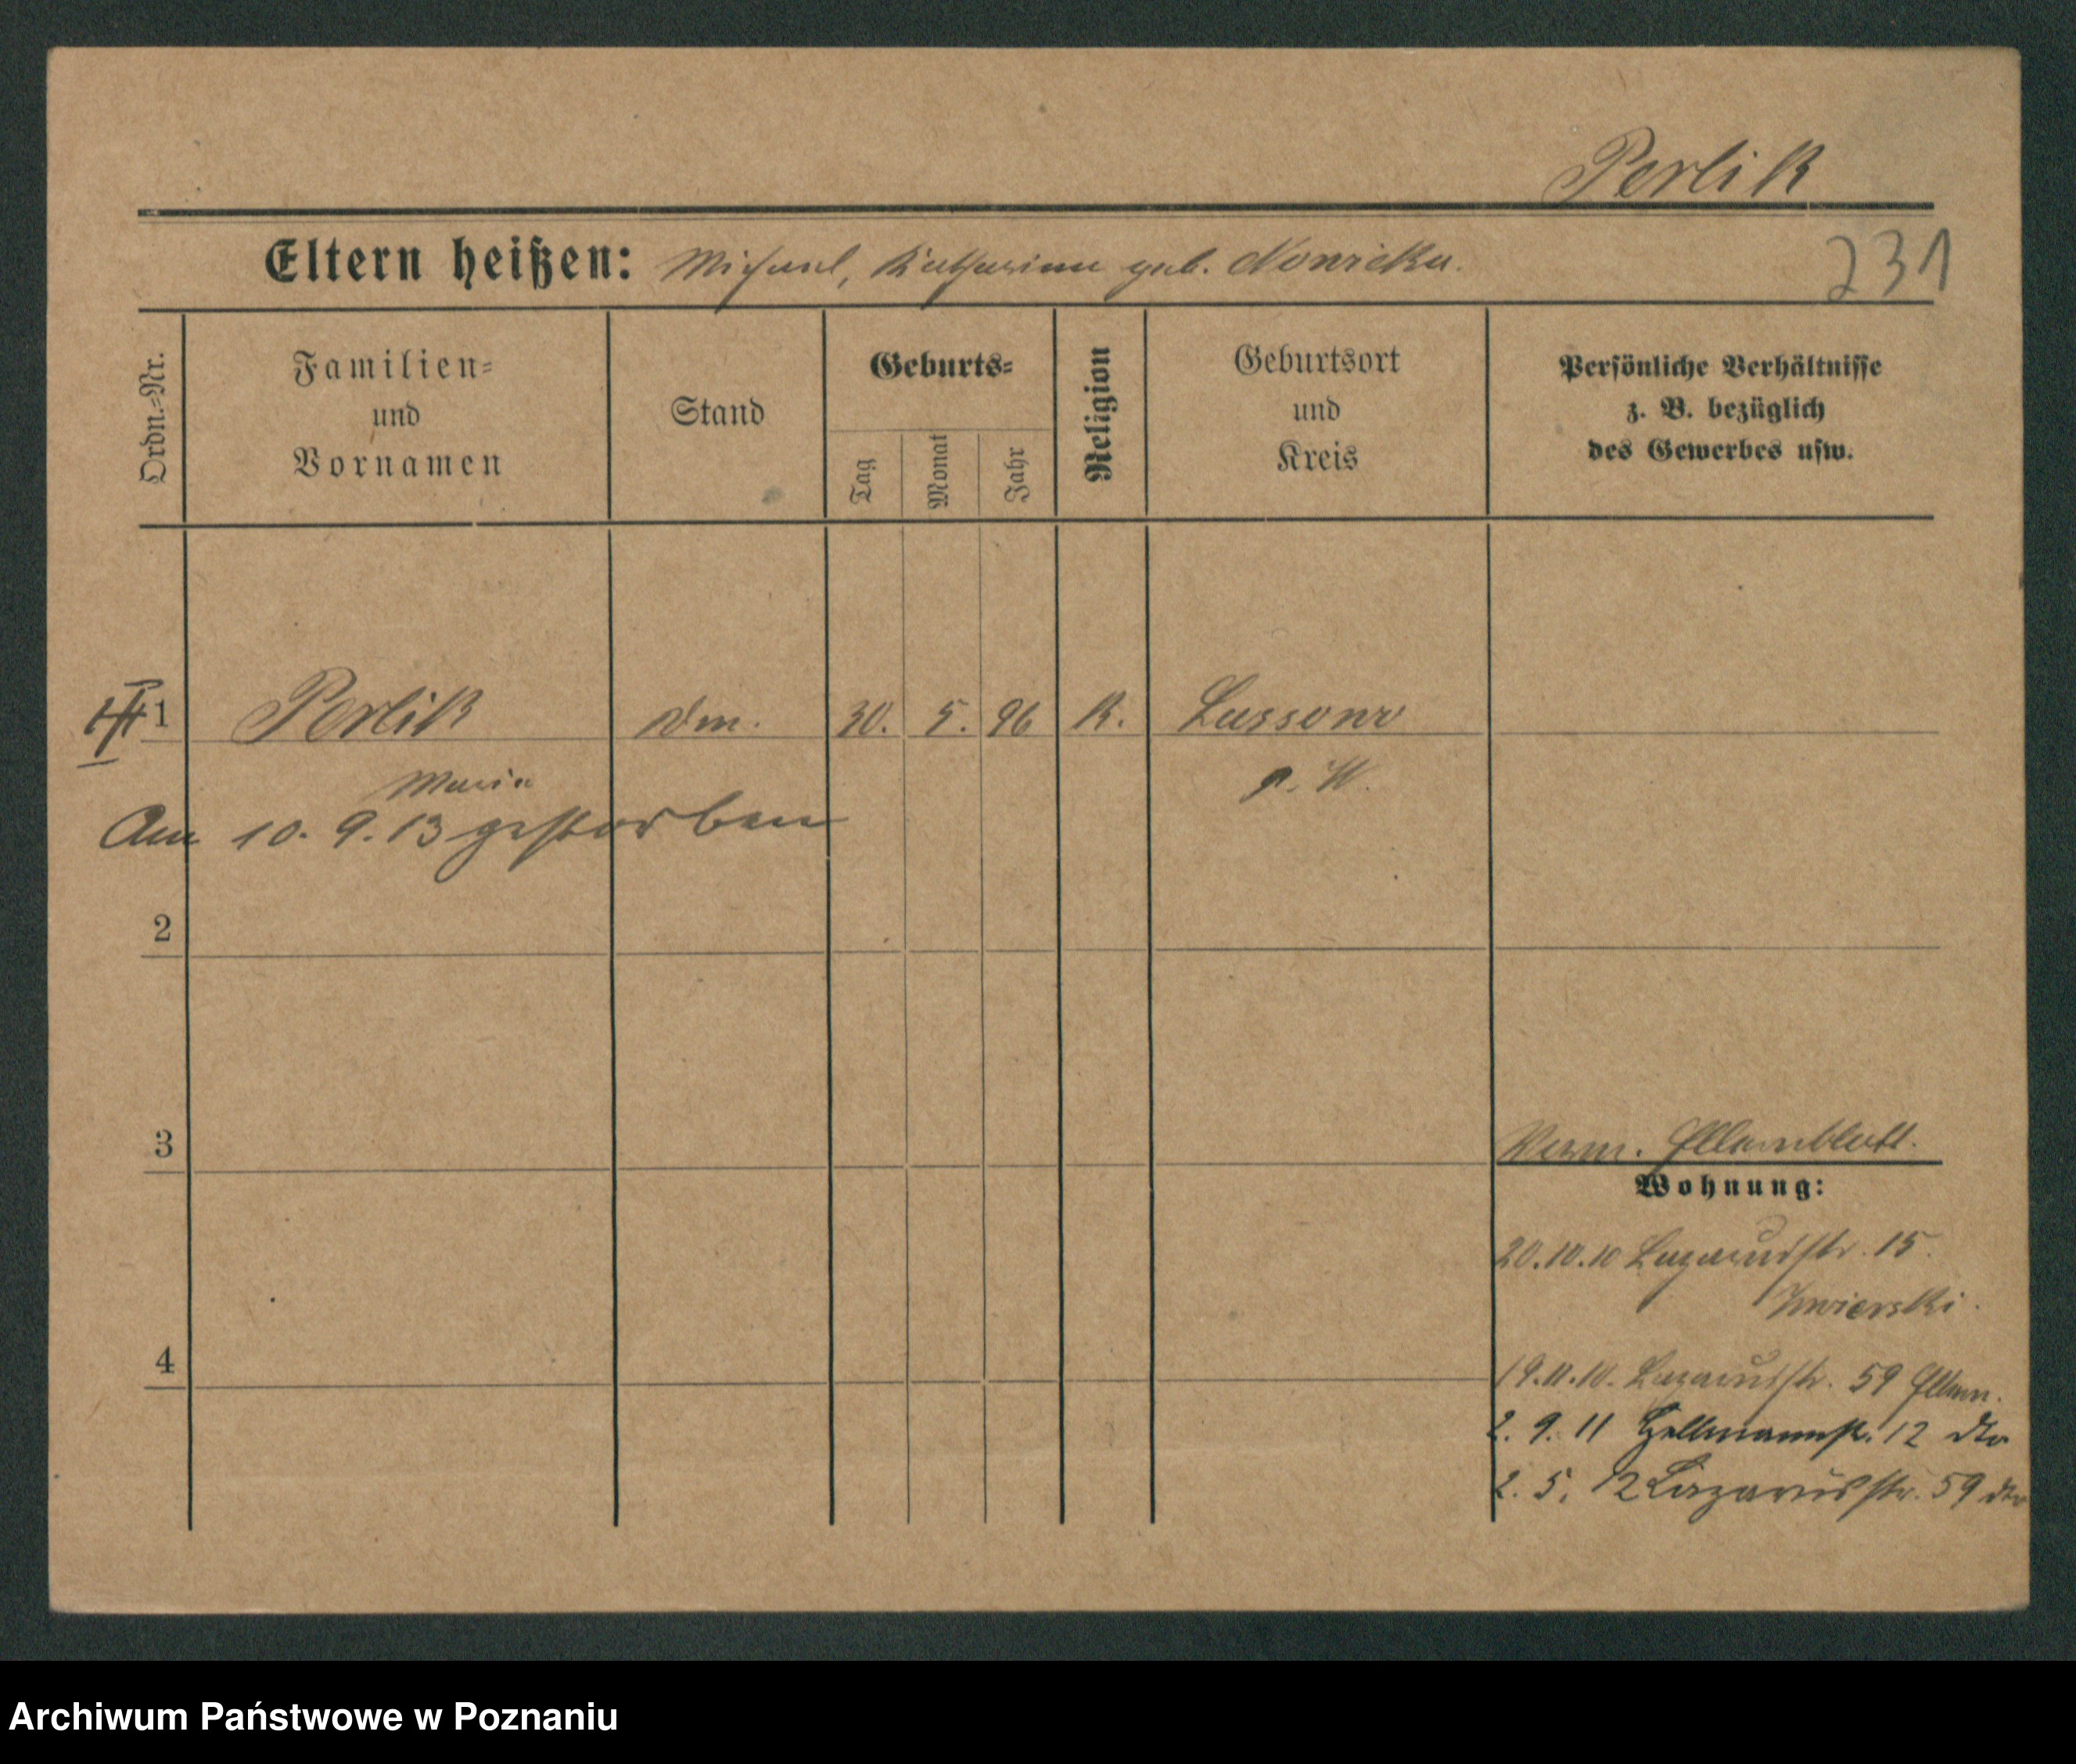 Perlik
Eltern heißen: Michael, Katharina geb. Nowicka.
231
Ordn.=Nr.
Familien=
und
Vornamen
Stand
Geburts=
Tag
Monat
Jahr
Religion
Geburtsort
und
Kreis
Persönliche Verhältnisse
z. B. bezüglich
des Gewerbes usw.
1 Perlik 30. 5. 96 K. Lussowo
Maria P. W.
Am 10. 9. 13 gestorben
2
3
Verm. Elternblatt.
Wohnung:
20.10.10 Lazarusstr. 15.
Zwierski.
4
19.11.10. Lazarusstr. 59 Eltern.
2. 9. 11 Hellmannstr. 12 dto
2. 5. 12 Lazarusstr. 59 dto
Archiwum Państwowe w Poznaniu